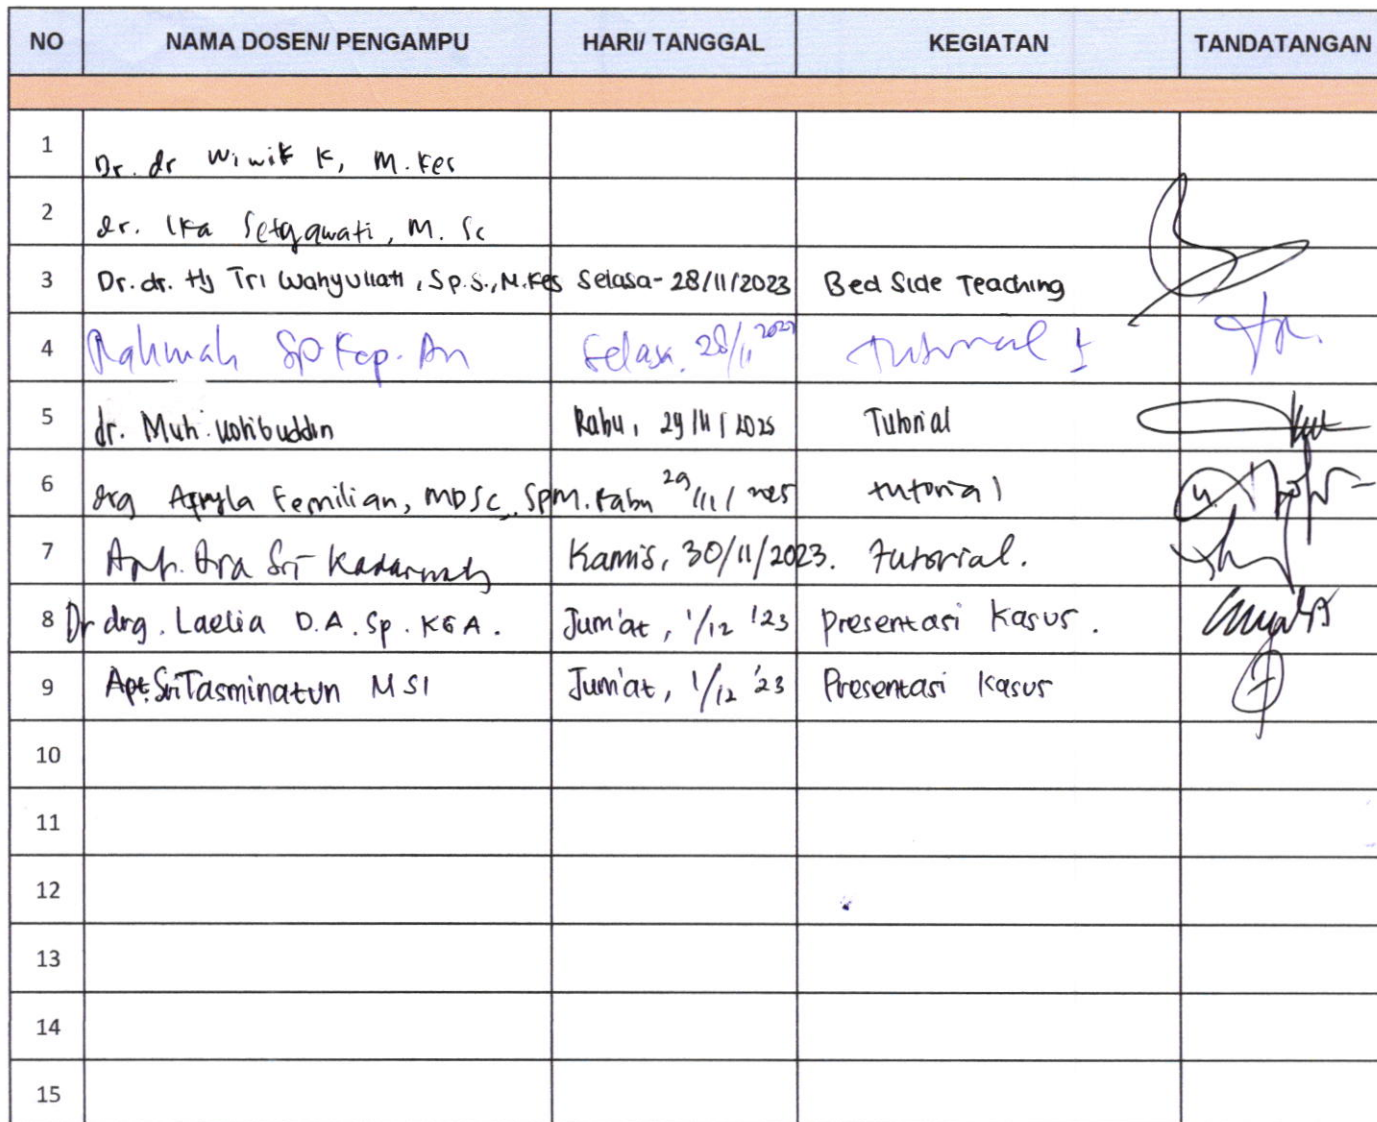 NO NAMA DOSEN/ PENGAMPU HARI/ TANGGAL KEGIATAN TANDATANGAN
1 Dr. dr Wiwik K, M. Kes
2 dr. Ika Setyawati, M. Sc
3 Dr. dr. Hj Tri Wahyuliati, Sp.S., M.Kes Selasa - 28/11/2023 Bed Side Teaching
4 Rahmah Sp Kep. An Selasa, 28/11 Tutorial 1
5 dr. Muh. Rabu, 29/11/ Tutorial
6 drg Femilian, MDSc, SpM. Rabu 29/11/ tutorial
7 Sri Kamis, 30/11/2023. tutorial.
8 Dr drg. Laelia D.A. Sp. KGA. Jum'at, 1/12 '23 presentasi Kasus.
9 Apt. Sri Tasminatun MSI Jum'at, 1/12 '23 Presentasi Kasus
10
11
12
13
14
15